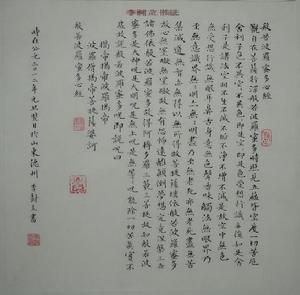 般若波羅蜜多心經
觀自在菩薩行深般若波羅蜜多時照見五蘊皆空度一切苦厄
舍利子色不異空空不異色色即是空空即是色受想行識亦復如是舍
利子是諸法空相不生不滅不垢不淨不增不減是故空中無色
無受想行識無眼耳鼻舌身意無色聲香味觸法無眼界乃
至無意識界無無明亦無無明盡乃至無老死亦無老死盡無苦
集滅道無智亦無得以無所得故菩提薩埵依般若波羅蜜多
故心無罣礙無罣礙故無有恐怖遠離顛倒夢想究竟涅槃三世
諸佛依般若波羅蜜多故得阿耨多羅三藐三菩提故知般若波羅
蜜多是大神咒是大明咒是無上咒是無等等咒能除一切苦真實不
虛故說般若波羅蜜多咒即說咒曰
揭帝揭帝波羅揭帝
波羅僧揭帝菩提薩婆訶
般若波羅蜜多心經
時在公元二〇一二年元月 日於山東德州 李 玉書